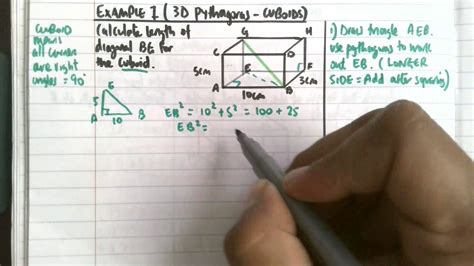 EXAMPLE 1 ( 3D Pythagoras - CUBOIDS)
CUBOID
means
all corners
are right
angles = 90°
Calculate length of
diagonal for
the Cuboid.
G H
C D
E F
A B
5cm
3cm
10cm
E
5
A 10 B
EB² = 10² + 5² = 100 + 25
EB² =
1) Draw triangle AEB.
use pythagoras to work
out EB. (LONGER
SIDE = Add after squaring)